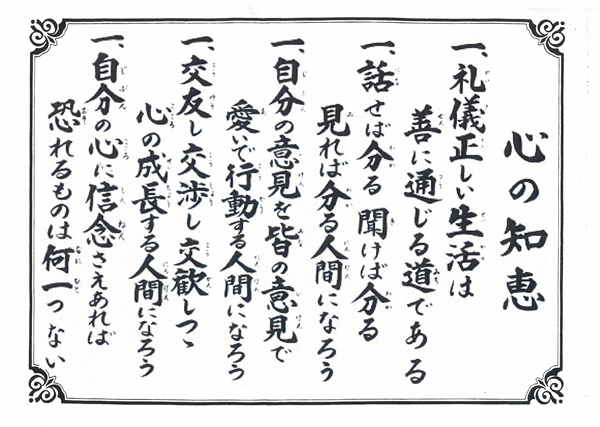 心の知恵
一、礼儀正しい生活は
善に通じる道である
一、話せば分る 聞けば分る
見れば分る人間になろう
一、自分の意見を皆の意見で
愛いで行動する人間になろう
一、交友し交渉し交歓しつゝ
心の成長する人間になろう
一、自分の心に信念さえあれば
恐れるものは何一つない